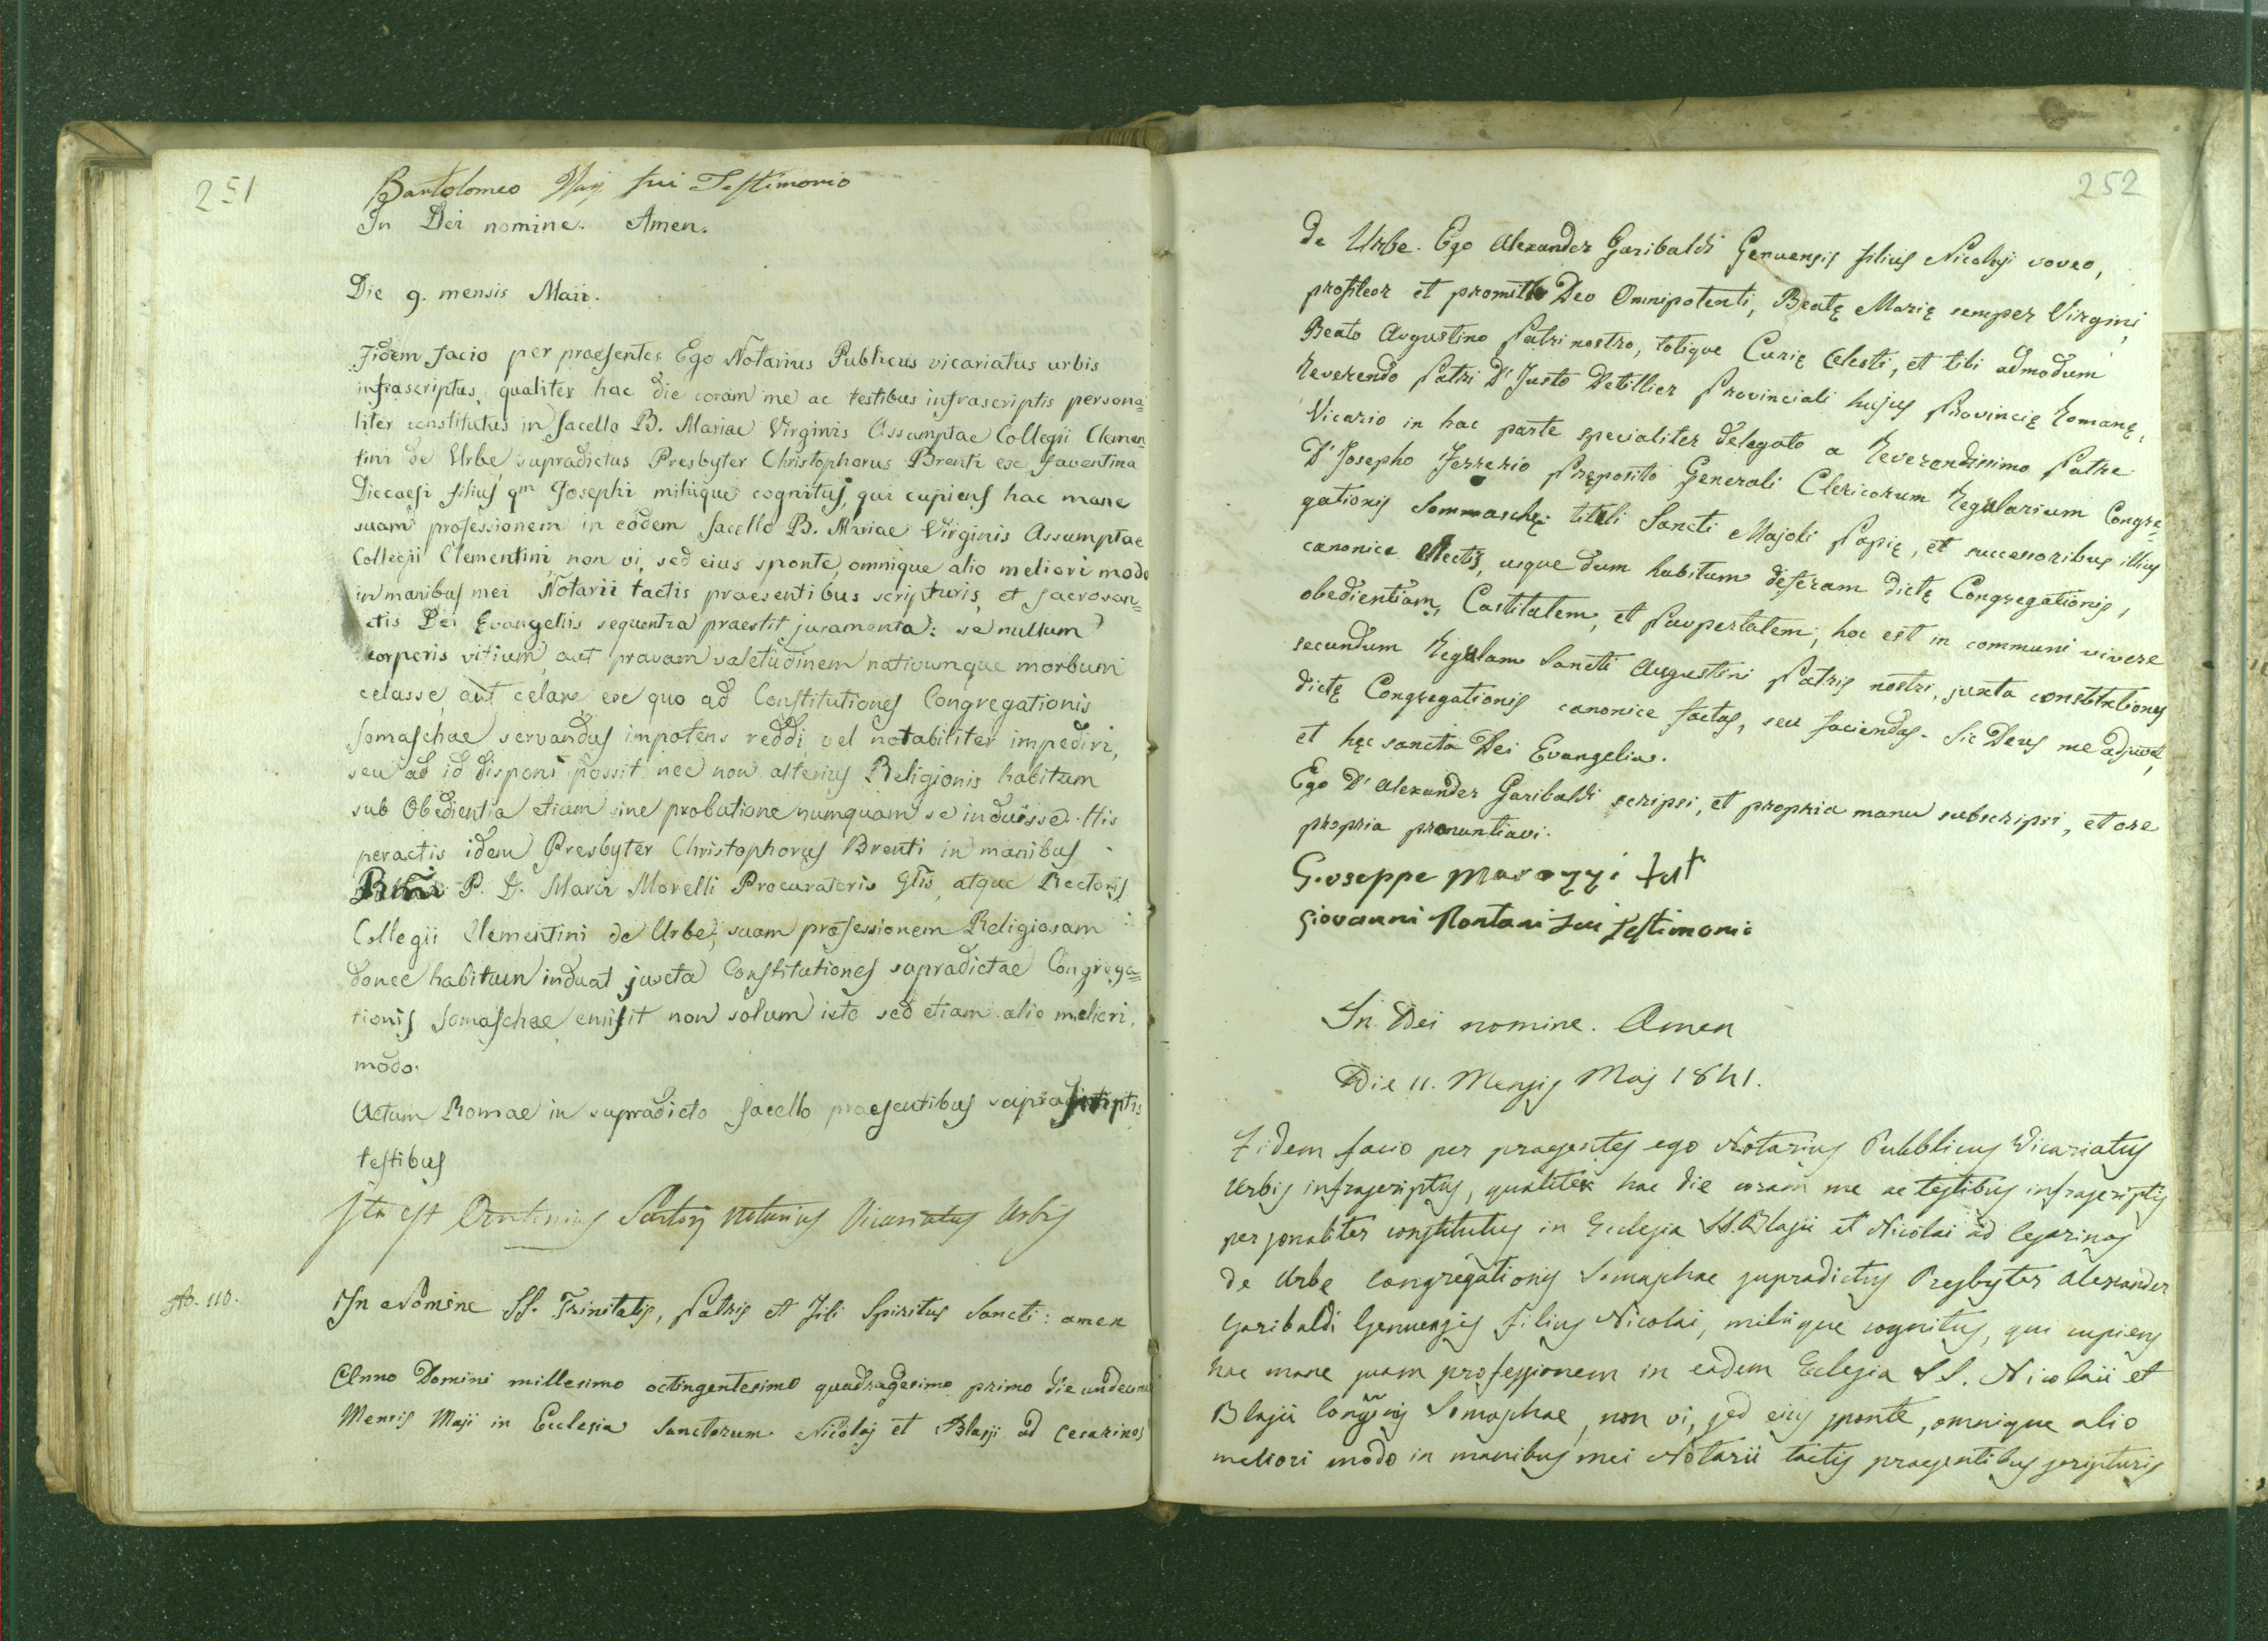 251
Bartolomeo fui Testimonio
In Dei nomine. Amen.
Die 9. mensis Maii.
Fidem facio per praesentes Ego Notarius Publicus vicariatus urbis
infrascriptus, qualiter hac die coram me ac testibus infrascriptis persona=
liter constitutus in Sacello B. Mariae Virginis Assumptae Collegii Clemen=
tini de Urbe supradictus Presbyter Christophorus Brenti ex Faventina
Diecaesi filius qm Josephi mihique cognitus, qui cupiens hac mane
suam professionem in eodem Sacello B. Mariae Virginis Assumptae
Collegii Clementini, non vi, sed eius sponte, omnique alio meliori modo
in manibus mei Notarii tactis praesentibus scripturis, et Sacrosan=
ctis Dei Evangeliis sequentia praestit juramenta: se nullum
corporis vitium, aut pravam valetudinem nativumque morbum
celasse, aut celare, ex quo ad Constitutiones Congregationis
Somaschae servandas impotens reddi, vel notabiliter impediri,
seu ad id disponi possit, nec non alterius Religionis habitum
sub Obedientia etiam sine probatione numquam se induisse. His
peractis idem Presbyter Christophorus Brenti in manibus
Rmi P. D. Marci Morelli Procuratoris Glis, atque Rectoris
Collegii Clementini de Urbe, suam professionem Religiosam
donec habitum induat juxta Constitutiones supradictae Congrega=
tionis Somaschae emisit non solum isto sed etiam alio meliori
modo.
Actum Romae in supradicto Sacello praesentibus suprascriptis
testibus
Ita est Sartorj Notarius Vicariatus Urbis
No. 110.
In Nomine SS. Trinitatis, Patris et Fili Spiritus Sancti: amen
Anno Domini millesimo octingentesimo quadragesimo primo die undecima
Mensis Maji in Ecclesia Sanctorum Nicolaj et Blasji ad Cesarinos
252
de Urbe. Ego Alexander Garibaldi Genuensis filius Nicolaji voveo,
profiteor et promitto Deo Omnipotenti, Beatę Marię semper Virgini,
Beato Augustino Patri nostro, totique Curię Celesti, et tibi admodum
Reverendo Patri D. Justo Detillier Provinciali hujus Provincię Romanę,
Vicario in hac parte specialiter delegato a Reverendissimo Patre
D. Josepho Ferrerio Pręposito Generali Clericorum Regularium Congre=
gationis Sommaschę tituli Sancti Majoli Papię, et successoribus illius
canonice electis, usque dum habitum deferam dictę Congregationis,
obedientiam, Castitatem, et Paupertatem, hoc est in communi vivere
secundum Regulam Sancti Augustini Patris nostri, juxta constitutiones
dictę Congregationis canonice factas, seu faciendas. Sic Deus me adjuvet,
et hęc sancta Dei Evangelia.
Ego D. Alexander Garibaldi scripsi, et propria manu subscripsi, et ore
proprio pronuntiavi.
Giuseppe Marozzi test
Giovanni Rontani fui Testimonio
In Dei nomine. Amen
Die 11. Mensis Maj 1841.
Fidem facio per praesentes ego Notarius Pubblicus Vicariatus
Urbis infrascriptus, qualiter hac die coram me ac testibus infrascriptis
personaliter constitutus in Ecclesia SS. Blasii et Nicolai ad Cesarinos
de Urbe Congregationis Somaschae supradictus Presbyter Alexander
Garibaldi Genuensis filius Nicolai, mihique cognitus, qui cupiens
hac mane suam professionem in eadem Eclesia SS. Nicolaii et
Blasii Congnis Somaschae, non vi, sed eius sponte, omnique alio
meliori modo in manibus mei Notarii tactis praesentibus scripturis